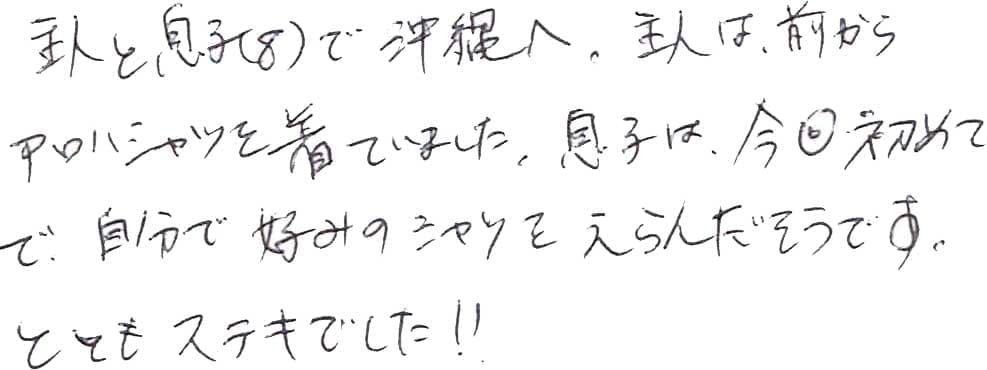 主人と息子(8)で沖縄へ。主人は、前から
アロハシャツを着ていました。息子は、今回初めて
で、自分で好みのシャツをえらんだそうです。
とともステキでした!!